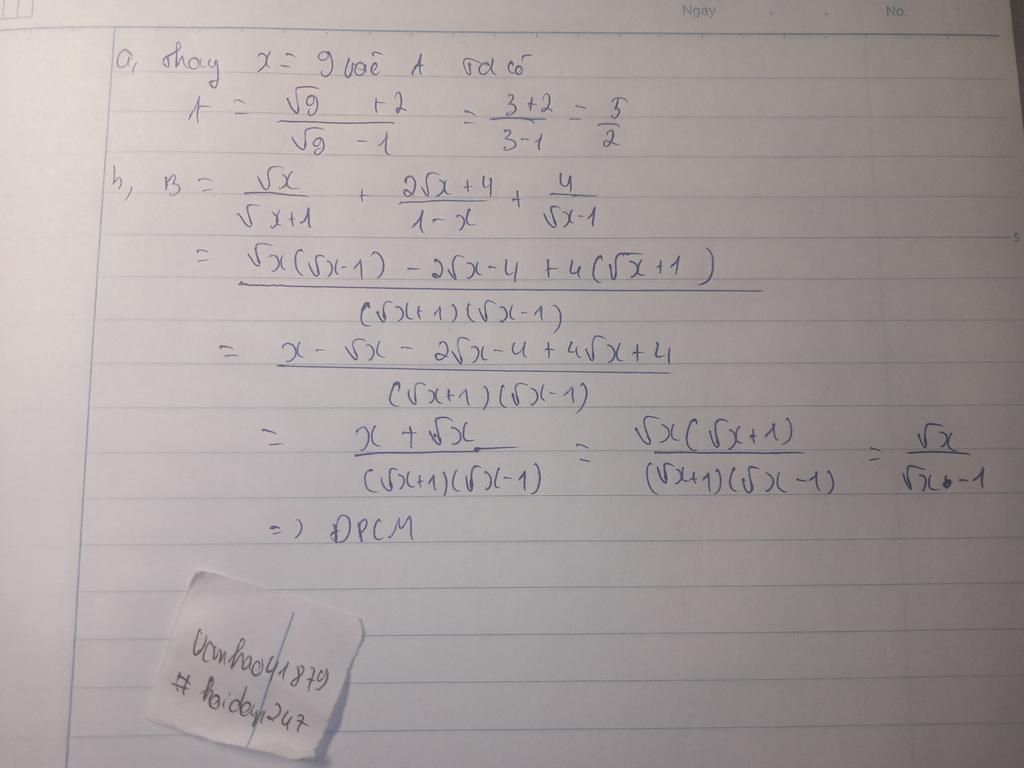 Ngày . . No.
a, thay x = 9 vào A ta có
A = (√9 + 2)/(√9 - 1) = (3+2)/(3-1) = 5/2
b, B = √x/(√x+1) + (2√x+4)/(1-x) + 4/(√x-1)
= (√x(√x-1) - 2√x-4 + 4(√x+1))/((√x+1)(√x-1))
= (x - √x - 2√x-4 + 4√x+4)/((√x+1)(√x-1))
= (x + √x)/((√x+1)(√x-1)) = (√x(√x+1))/((√x+1)(√x-1)) = √x/(√x-1)
=> ĐPCM
5
# hoidap247